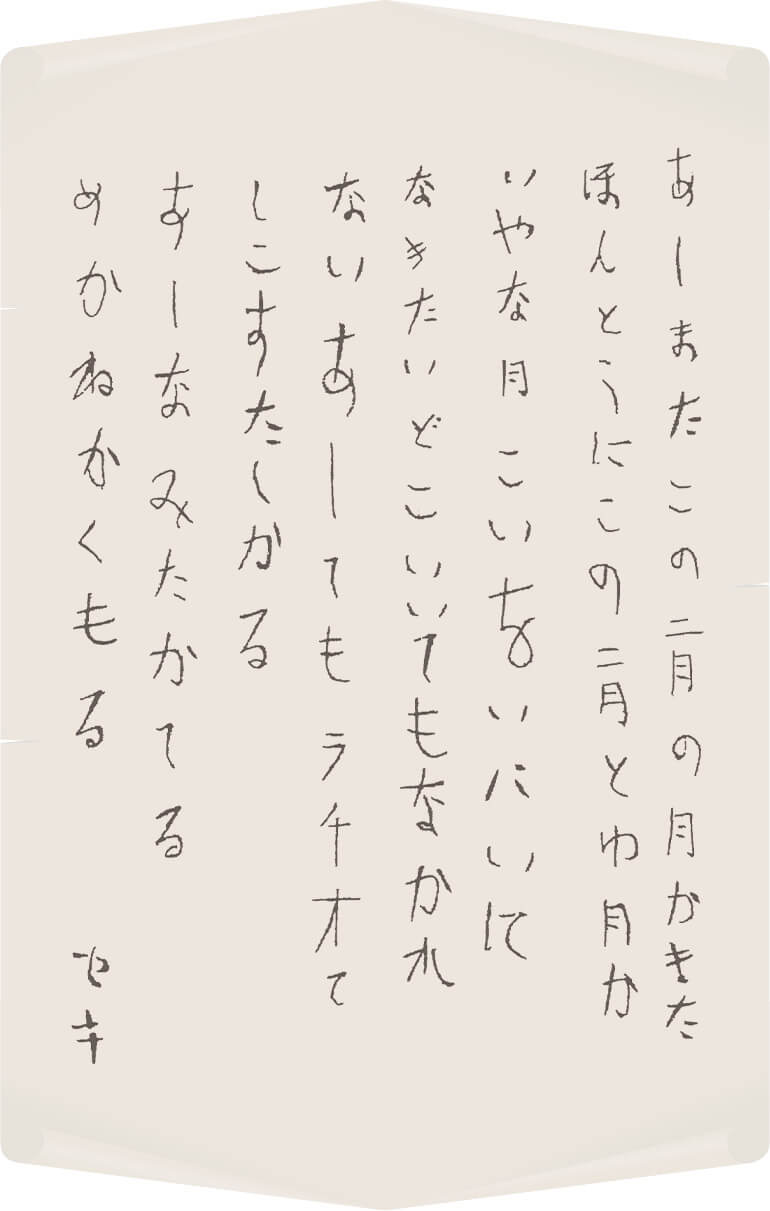 あーまたこの二月の月かきた
ほんとうにこの二月とゆ月か
いやな月こいをいパいに
なきたいどこいいてもなかれ
ないあーてもラチオて
しこすたしかる
あーなみたかてる
めかねかくもる セキ